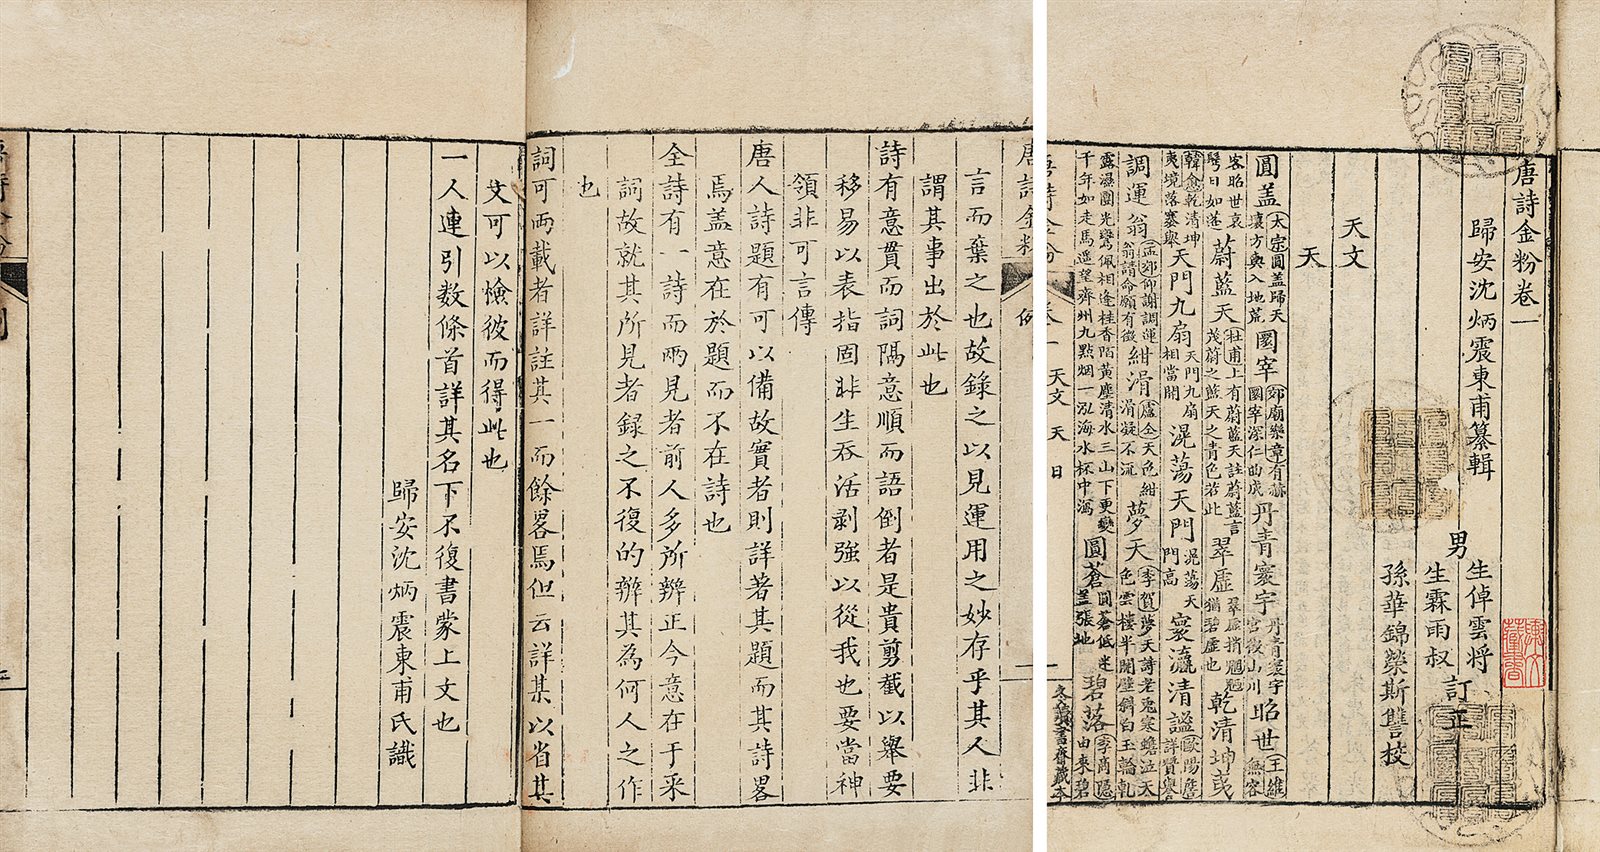 唐詩金粉卷一
歸安沈炳震東甫纂輯
男生倬雲將
生霖雨叔訂正
孫華錦榮斯讐校
天文
天
圓盖太宗圓盖歸天壤方輿入地荒圜宰郊廟樂章有赫圜宰深仁曲成丹青寰宇丹青寰宇宮徵山川昭世王維無容
客昭世衰鬢日如蓬蔚藍天杜甫上有蔚藍天註蔚藍言茂蔚之藍天之青色若此翠虛翠虛捎魍魎猶碧虛也乾清坤夷
韓愈乾清坤夷境落褰舉天門九扇天門九扇相當開滉蕩天門滉蕩天門高寥瀛清謐歐陽詹詳贊寥
調運翁孟郊仰謝調運翁請命願有徵紺滑盧仝天色紺滑凝不流夢天李賀夢天詩老兔寒蟾泣天色雲樓半開壁斜白玉輪軋
露濕團光鸞佩相逢桂香陌黃塵清水三山下更變千年如走馬遥望齊州九點烟一泓海水杯中瀉圓蒼圓蒼低迷盖張地碧落李商隱由來碧
唐詩金粉 卷一 天文 天 日 一 冬讀書齋藏本
唐詩金粉 例
言而棄之也故錄之以見運用之妙存乎其人非
謂其事出於此也
詩有意貫而詞隔意順而語倒者是貴剪截以舉要
移易以表指固非生吞活剥強以從我也要當神
領非可言傳
唐人詩題有可以備故實者則詳著其題而其詩畧
焉盖意在於題而不在詩也
全詩有一詩而兩見者前人多所辨正今意在于采
詞故就其所見者録之不復的辨其為何人之作
也
詞可兩載者詳註其一而餘畧焉但云詳某以省其
文可以檢彼而得此也
一人連引数條首詳其名下不復書蒙上文也
歸安沈炳震東甫氏識